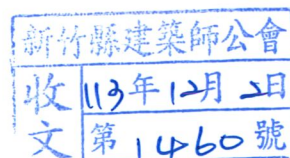 新竹縣建築師公會
收文
113年12月2日
第1460號